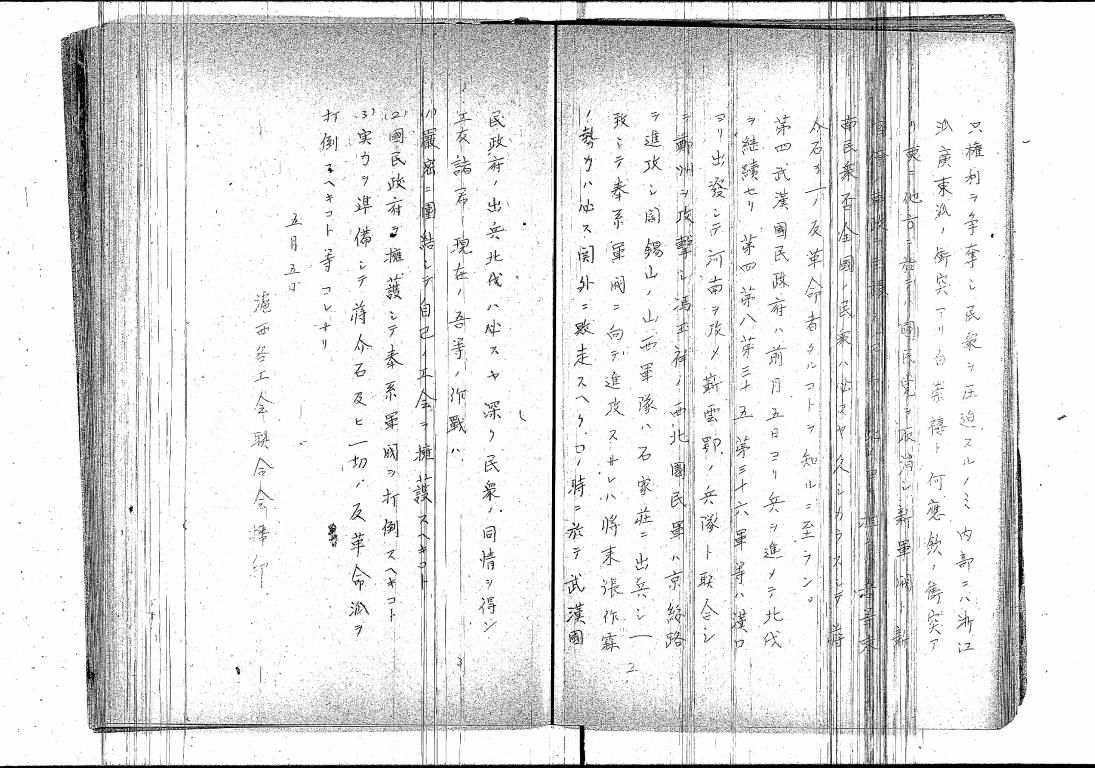 只権利ヲ争奪シ民衆ヲ圧迫スルノミ 内部ニハ浙江
派廣東派ノ衝突アリ白崇禧ト何應欽ノ衝突ア
リ 更ニ他方ニ ノ國民党ヲ取消シ新軍閥ト新
南民衆否全國ノ民衆ハ必スヤ久シカラスシテ蒋
介石ヲ一ノ反革命者タルコトヲ知ルニ至ラン。
第四武漢國民政府ハ前月五日ヨリ兵ヲ進メテ北伐
ヲ継續セリ 第四第八第三十五第三十六軍等ハ漢口
ヨリ出發シテ河南ヲ攻メ靳雲鄂ノ兵隊ト联合シ
テ鄭州ヲ攻撃シ馮玉祥ノ西北國民軍ハ京綏路
ヲ進攻シ閻錫山ノ山西軍隊ハ石家荘ニ出兵シ一
致シテ奉系軍閥ニ向テ進攻スサレハ将来張作霖
ノ勢力ハ必ス関外ニ敗走スヘク、コノ時ニ於テ武漢國
三
民政府ノ出兵北伐ハ必スヤ深ク民衆ノ同情ヲ得ン
工友諸君 現在ノ吾等ノ作戰ハ
(1)嚴密ニ團結シテ自己ノ工会ヲ擁護スヘキコト
(2)國民政府ヲ擁護シテ奉系軍閥ヲ打倒スヘキコト
(3)実力ヲ準備シテ蒋介石及ヒ一切ノ反革命派ヲ
打倒スヘキコト等コレナリ
五月五日
滬西各工会联合会 印